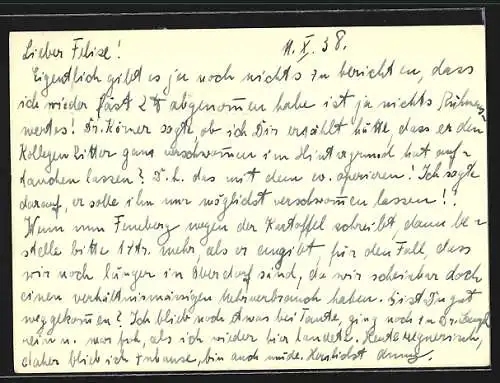 Lieber Felise! 11. X. 38.
Eigentlich gibt es ja noch nichts zu berichten, dass
ich wieder fast 2 ℔ abgenommen habe ist ja nichts Rühmens-
wertes! Dr. Körner sagte, ob ich Dir erzählt hätte, dass er den
Kollegen Ritter ganz verschwommen im Hintergrund hat auf-
tauchen lassen? D.h. das mit dem ev. operieren! Ich sagte
darauf, er solle ihn nur möglichst verschwommen lassen!!
Wenn nun Feneberg wegen der Kartoffel schreibt, dann be-
stelle bitte 1 Ztr. mehr, als er angibt, für den Fall, dass
wir noch länger in Oberdorf sind, da wir scheinbar doch
einen verhältnismässigen Mehrverbrauch haben. Bist Du gut
weggekommen? Ich blieb noch etwas bei Tante, ging noch zu Dr.
u. war froh, als ich wieder hier landete. Heute regnerisch,
daher blieb ich zuhause, bin auch müde. Herzlichst